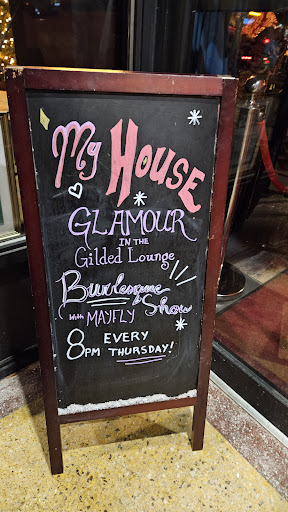 My HOUSE
GLAMOUR
IN THE
Gilded Lounge
Burlesque
Show
With MAYFLY
8PM EVERY
THURSDAY!